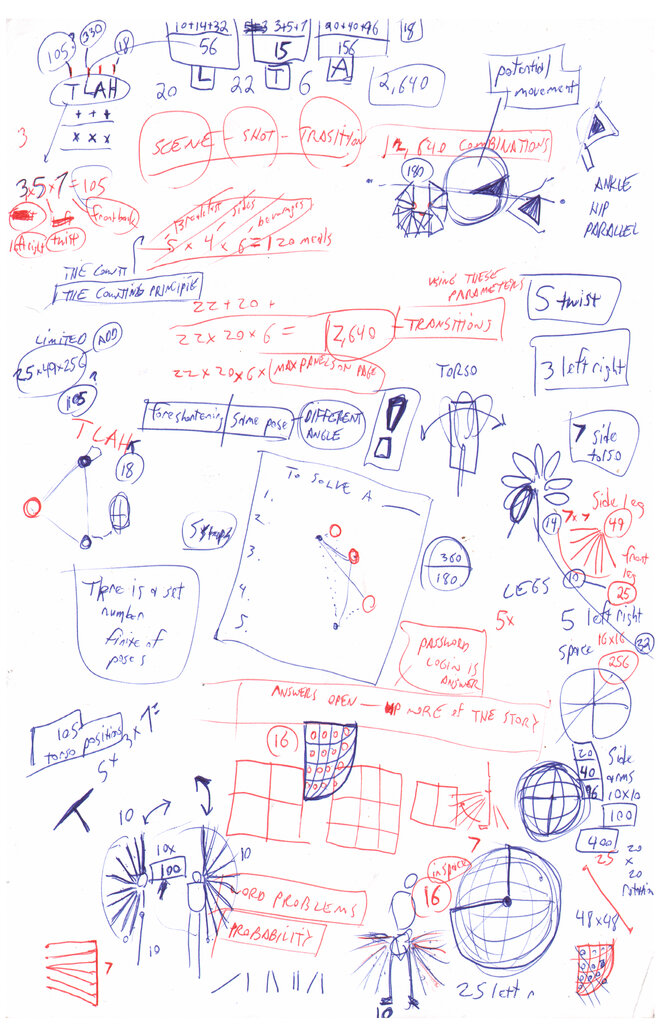 105
330
18
TLAH
+ + +
x x x
10+14+32
56
L
3+5+7
15
T
20+40+96
156
A
18
20
22
6
2,640
potential
movement
3
SCENE - SHOT - TRASITION
12,640 COMBINATIONS
180
ANKLE
HIP
PARALLEL
3x5x7=105
front back
left right
twist
Breakfast
sides
beverages
5 x 4 x 6 = 120 meals
THE COUNTI
THE COUNTING PRINCIPLE
22+20+
22x20x6 =
2,640
TRANSITIONS
USING THESE
PARAMETERS
22x20x6x MAX PANELS ON PAGE
5 twist
3 left right
LIMITED
ADD
25x49x256
105
TLAH
18
Foreshortening
Same pose
DIFFERENT
ANGLE
!
TORSO
7 side
torso
TO SOLVE A
1.
2.
3.
4.
5.
360
180
14
7x7
Side leg
49
front
leg
25
10
LEGS
5x
5 left right
16x16
32
space
256
There is a set
number
finite of
poses
PASSWORD
LOGIN IS
ANSWER
ANSWERS OPEN — UP MORE OF THE STORY
105
torso position
5+
3x7=
16
20
40
96
Side
arms
10x10
100
400
25
20
x
20
10
10x
100
10
10
7
in space
16
WORD PROBLEMS
PROBABILITY
48x48
7
10
25 left r